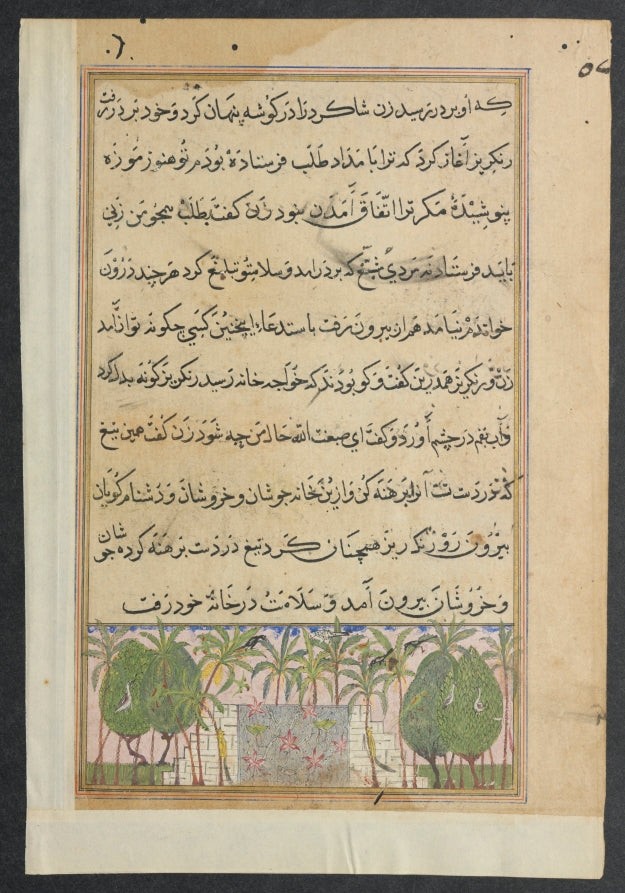 که او بر در رسید زن شاکرد را در کوشه پنهان کرد و خود بر در رفت
رنکریز آغاز کرد که ترا بامداد طلب فرستاده بودم تو هنوز موزه
پوشیدهٔ مکر ترا اتفاق آمدن نبود زن کفت بطلب همچو من زنی
باید فرستاد نه مردی تیغ که بر در امد و سلام تو تبلیغ کرد هر چند درون
خواندم نیامد همران بیرون رفت باستدعاء اینچنین کسی چکونه توان آمد
زن و رنکریز همدرین کفت و کو بودند که خواجه خانه رسید رنکریز کونه بد کرد
و آب بقم در چشم آورد و کفت ای صبغت الله حال من چه شود زن کفت همین تیغ
که در دست تست آنرا برهنه کن و ازین خانه جوشان و خروشان و دشنام کویان
بیرون رو رنکریز همچنان کرد تیغ در دست برهنه کرده جوشان
و خروشان بیرون آمد و سلامت در خانهٔ خود رفت